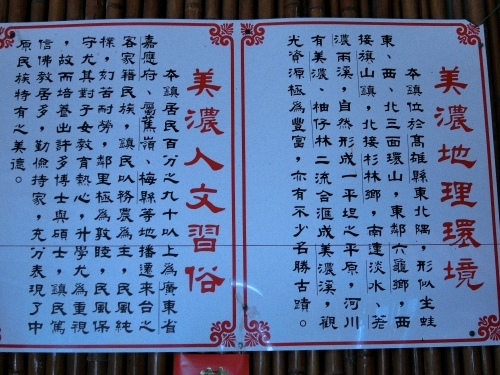 美濃地理環境
本鎮位於高雄縣東北隅，形似坐蛙
東、西、北三面環山，東鄰六龜鄉，西
接旗山鎮，北接杉林鄉，南連淡水、荖
濃兩溪，自然形成一平坦之平原，河川
有美濃、柚仔林二流合匯成美濃溪，觀
光資源極為豐富，亦有不少名勝古蹟。
美濃人文習俗
本鎮居民百分之九十以上為廣東省
嘉應府、屬蕉嶺、梅縣等地播遷來台之
客家籍民族，鎮民以務農為主，民風純
樸，如苦耐勞，鄰里極為敦睦，民風保
守尤其對子女教育熱心，升學尤為重視
，故而培養出許多博士與碩士，鎮民篤
信佛教居多，勤儉持家，充分表現了中
原民族特有之美德。